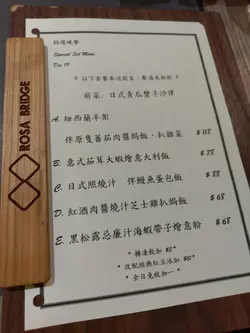 ROSA BRIDGE
特選晚餐
Special Set Menu
Dec 19
* 以下套餐奉送前菜、餐湯及熱飲 *
前菜：日式青瓜蟹子沙律
A. 紐西蘭羊架
伴原隻蕃茄肉醬焗飯‧扒雜菜 $118
B. 意式茄茸大蝦燴意大利飯 $78
C. 日式照燒汁 伴鰻魚蛋包飯 $88
D. 紅酒肉醬燒汁芝士雞扒焗飯 $68
E. 黑松露忌廉汁海蝦帶子燴意粉 $68
* 轉凍飲加 $3 *
* 改配經典紅豆冰加 $10 *
* 全日免收加一 *